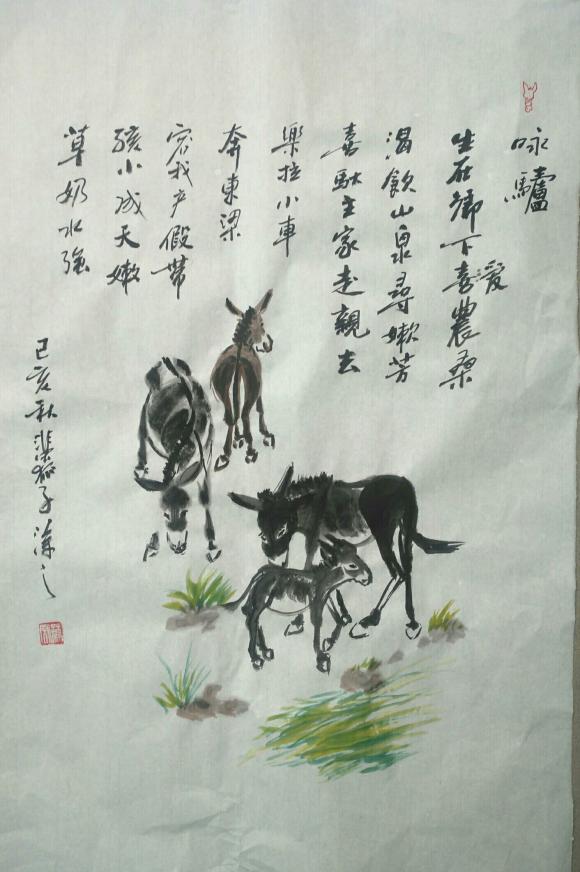 咏驢
生在鄉下喜愛農桑
渴飲山泉尋嫩芳
喜馱主家走親去
樂拉小車
奔東梁
容我产假带
孩小成天嫩
草奶水強
己亥秋